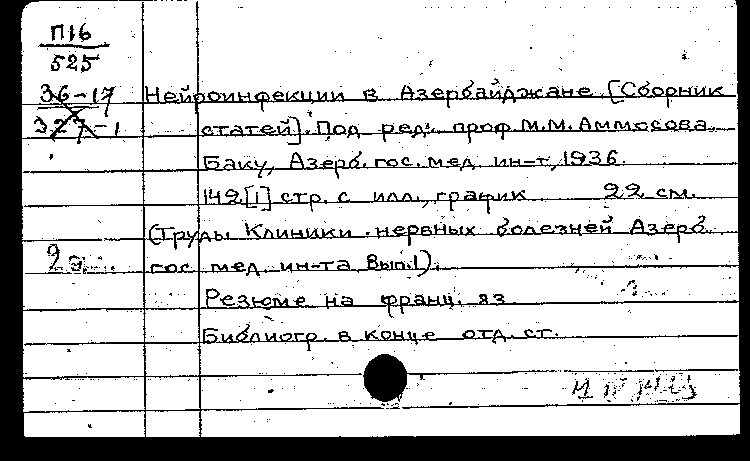 П16
525
36-17
327-1
Нейроинфекции в Азербайджане. [Сборник
статей]. Под ред. проф. М.М. Аммосова.
Баку, Азерб. гос. мед. ин-т, 1936.
142 [1] стр. с илл., график 22 см.
(Труды Клиники нервных болезней Азерб.
2э
гос. мед. ин-та. Вып. 1).
Резюме на франц. яз.
Библиогр. в конце отд. ст.